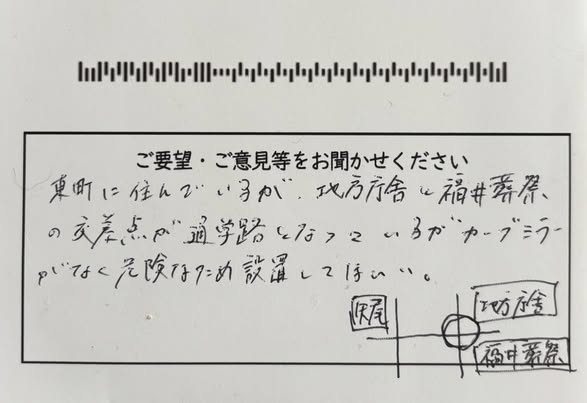 ご要望・ご意見等をお聞かせください
東町に住んでいるが、地方庁舎と福井葬祭
の交差点が通学路となっているがカーブミラー
がなく危険なため設置してほしい。
地方庁舎
福井葬祭